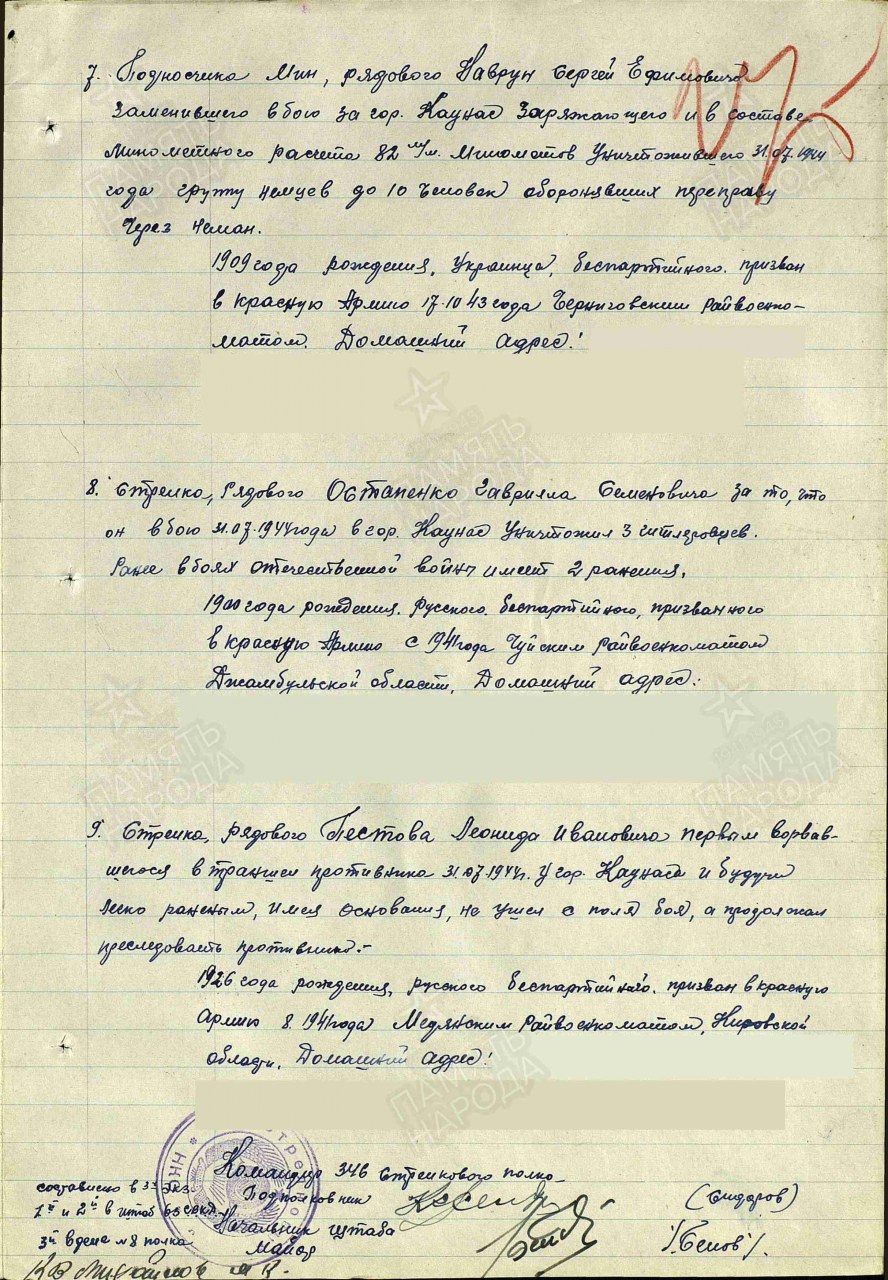 7. Подносчика Мин, рядового Наврун Сергей Ефимовича
Заменившего в бою за гор. Каунас Заряжающего и в составе
Минометного расчета 82 м/м. Минометов Уничтожившего 31.07.1944
года группу немцев до 10 Человек оборонявших переправу
Через Неман.
1909 года рождения, Украинца, беспартийного. призван
в Красную Армию 17.10 43 года Черниговским Райвоенко-
матом. Домашний адрес:
8. Стрелка, Рядового Остапенко Гавриила Семеновича за то, что
он в бою 31.07.1944 года в гор. Каунас Уничтожил 3 гитлеровцев.
Ранее в боях отечественной войны имеет 2 ранения.
1900 года рождения. Русского. беспартийного, призванного
в Красную Армию с 1941 года Чуйским Райвоенкоматом
Джамбульской области. Домашний адрес:
9. Стрелка, рядового Пестова Леонида Ивановича первым ворвав-
шегося в траншеи противника 31.07.1944г. у гор. Каунаса и будучи
Легко раненым, имея основания, не ушел с поля боя, а продолжал
преследовать противника.-
1926 года рождения, русского беспартийного. призван в красную
Армию 8.1941 года Медянским Райвоенкоматом, Кировской
области. Домашний адрес:
Командир 346 Стрелкового полка
составлено в 3х экз. Подполковник (Сидоров)
1й и 2й в штаб
Начальник штаба
3й в дела 8 полка Майор /Белов/.
ПАМЯТЬ НАРОДА